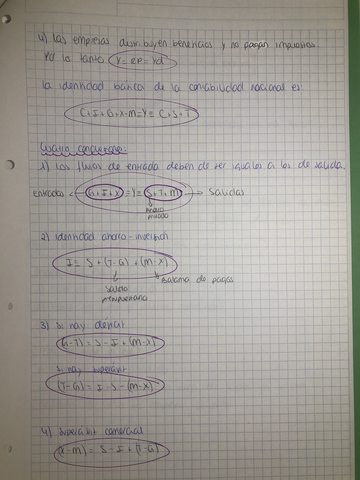 4) Las empresas distribuyen beneficios y no pagan impuestos.
Por lo tanto Y = RP = Yd
La identidad básica de la contabilidad nacional es:
C+I+G+X-M=Y= C+S+T
1) Los flujos de entrada deben de ser iguales a los de salida.
Entradas G+I+X = Y = S+T+M → Salidas
Ahorro
privado
2) Identidad ahorro-inversión
I = S + (T-G) + (M-X)
Saldo
Balanza de pagos
3) Si hay déficit
(G-T) = S - I + (M-X)
Si hay superávit
(T-G) = I - S - (M-X)
4) Superávit comercial
(X-M) = S - I + (T-G)